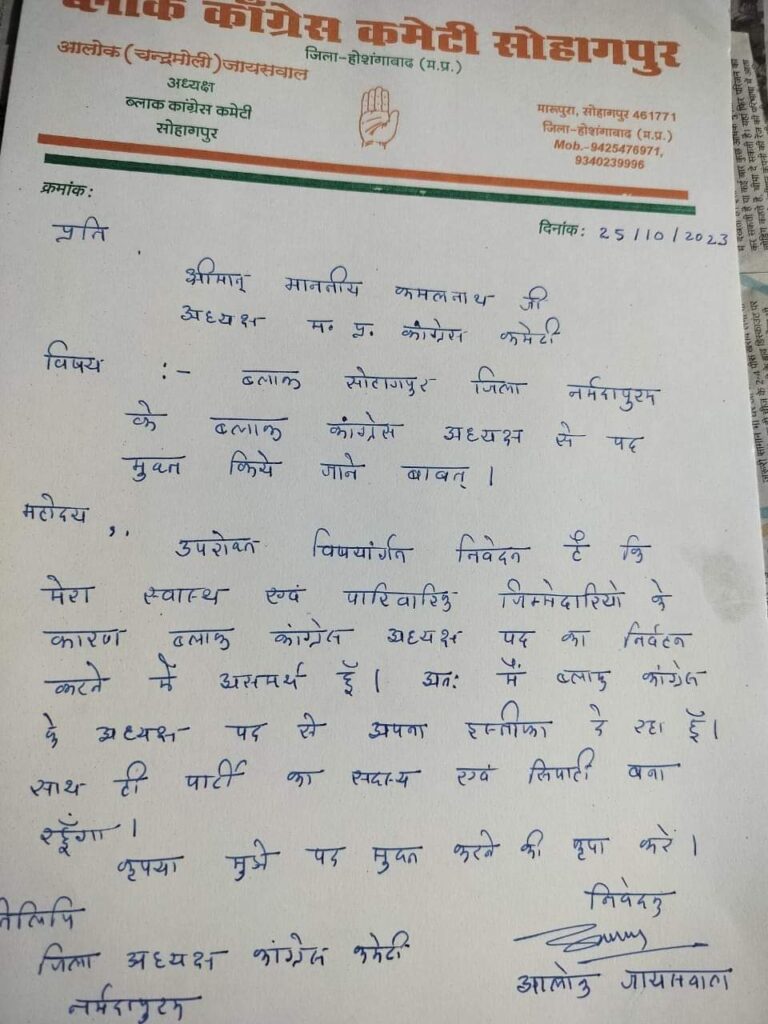 ब्लाक काँग्रेस कमेटी सोहागपुर
जिला-होशंगाबाद (म.प्र.)
आलोक (चन्द्रमोली) जायसवाल
अध्यक्ष
ब्लाक कांग्रेस कमेटी
सोहागपुर
मारूपुरा, सोहागपुर 461771
जिला-होशंगाबाद (म.प्र.)
Mob.-9425476971,
9340239996
क्रमांक:
दिनांक: 25/10/2023
प्रति
श्रीमान् माननीय कमलनाथ जी
अध्यक्ष म. प्र. कांग्रेस कमेटी
विषय :- ब्लाक सोहागपुर जिला नर्मदापुरम
के ब्लाक कांग्रेस अध्यक्ष से पद
मुक्त किये जाने बावत् ।
महोदय ,,
उपरोक्त विषयांर्गत निवेदन है कि
मेरा स्वास्थ एवं पारिवारिक जिम्मेदारियो के
कारण ब्लाक कांग्रेस अध्यक्ष पद का निर्वहन
करने में असमर्थ हूँ । अतः मैं ब्लाक कांग्रेस
के अध्यक्ष पद से अपना इस्तीफा दे रहा हूँ ।
साथ ही पार्टी का सदस्य एवं सिपाही बना
रहूँगा ।
कृपया मुझे पद मुक्त करने की कृपा करें ।
निवेदक
आलोक जायसवाल
तिलिपि
जिला अध्यक्ष कांग्रेस कमेटी
नर्मदापुरम